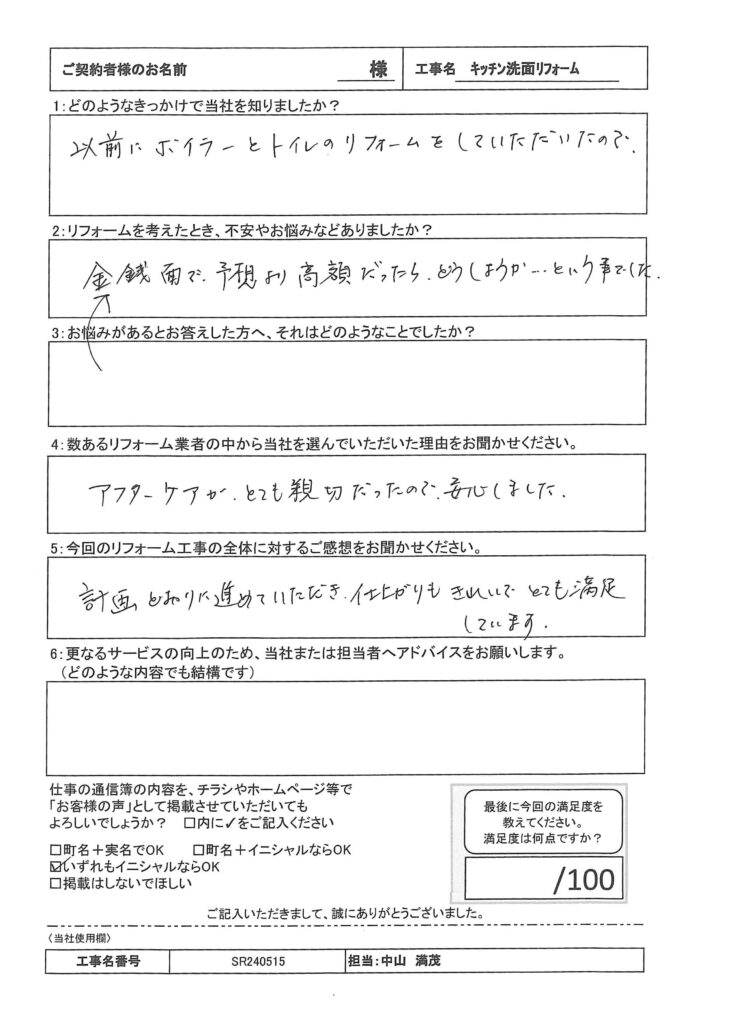 ご契約者様のお名前 様 工事名 キッチン洗面リフォーム
1:どのようなきっかけで当社を知りましたか？
以前にボイラーとトイレのリフォームをしていただいたので、
2:リフォームを考えたとき、不安やお悩みなどありましたか？
金銭面で、予想より高額だったら、どうしようか…という事でした。
3:お悩みがあるとお答えした方へ、それはどのようなことでしたか？
4:数あるリフォーム業者の中から当社を選んでいただいた理由をお聞かせください。
アフターケアが、とても親切だったので、安心しました。
5:今回のリフォーム工事の全体に対するご感想をお聞かせください。
計画どおりに進めていただき、仕上がりもきれいでとても満足
しています。
6:更なるサービスの向上のため、当社または担当者へアドバイスをお願いします。
（どのような内容でも結構です）
仕事の通信簿の内容を、チラシやホームページ等で
「お客様の声」として掲載させていただいても
よろしいでしょうか？ □内に✓をご記入ください
□町名＋実名でOK □町名＋イニシャルならOK
☑いずれもイニシャルならOK
□掲載はしないでほしい
最後に今回の満足度を
教えてください。
満足度は何点ですか？
/100
ご記入いただきまして、誠にありがとうございました。
〈当社使用欄〉
工事名番号 SR240515 担当:中山 満茂